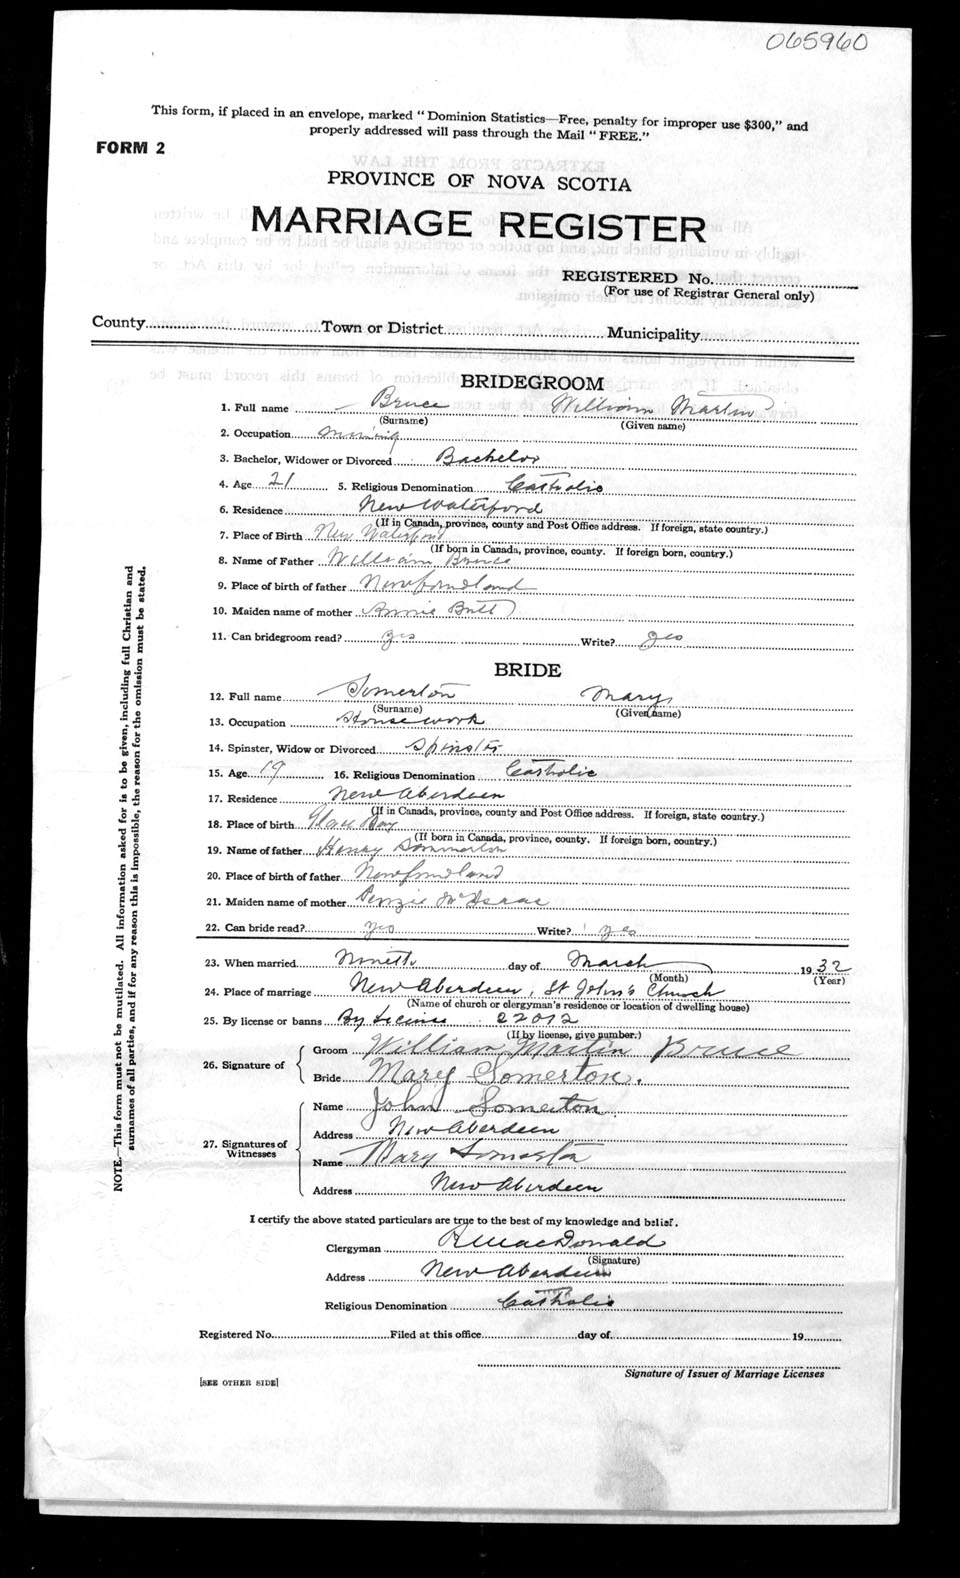 065960
This form, if placed in an envelope, marked "Dominion Statistics—Free, penalty for improper use $300," and
properly addressed will pass through the Mail "FREE."
FORM 2
PROVINCE OF NOVA SCOTIA
MARRIAGE REGISTER
REGISTERED No.
(For use of Registrar General only)
County Town or District Municipality
BRIDEGROOM
1. Full name Bruce William Martin
(Surname) (Given name)
2. Occupation mining
3. Bachelor, Widower or Divorced Bachelor
4. Age 21 5. Religious Denomination Catholic
6. Residence New Waterford
(If in Canada, province, county and Post Office address. If foreign, state country.)
7. Place of Birth New Waterford
(If born in Canada, province, county. If foreign born, country.)
8. Name of Father William Bruce
9. Place of birth of father Newfoundland
10. Maiden name of mother Annie Butt
11. Can bridegroom read? yes Write? yes
BRIDE
12. Full name Somerton Mary
(Surname) (Given name)
13. Occupation Housework
14. Spinster, Widow or Divorced Spinster
15. Age 19 16. Religious Denomination Catholic
17. Residence New Aberdeen
(If in Canada, province, county and Post Office address. If foreign, state country.)
18. Place of birth Glace Bay
(If born in Canada, province, county. If foreign born, country.)
19. Name of father Henry Sommerton
20. Place of birth of father Newfoundland
21. Maiden name of mother McIsaac
22. Can bride read? yes Write? yes
23. When married Nineth day of March 1932
(Month) (Year)
24. Place of marriage New Aberdeen, St John's Church
(Name of church or clergyman's residence or location of dwelling house)
25. By license or banns By License 22012
(If by license, give number.)
26. Signature of
Groom William Martin Bruce
Bride Mary Somerton.
27. Signatures of Witnesses
Name John Somerton
Address New Aberdeen
Name Mary Somerton
Address New Aberdeen
I certify the above stated particulars are true to the best of my knowledge and belief.
Clergyman MacDonald
(Signature)
Address New Aberdeen
Religious Denomination Catholic
Registered No. Filed at this office day of 19
Signature of Issuer of Marriage Licenses
[SEE OTHER SIDE]
NOTE.—This form must not be mutilated. All information asked for is to be given, including full Christian and
surnames of all parties, and if for any reason this is impossible, the reason for the omission must be stated.